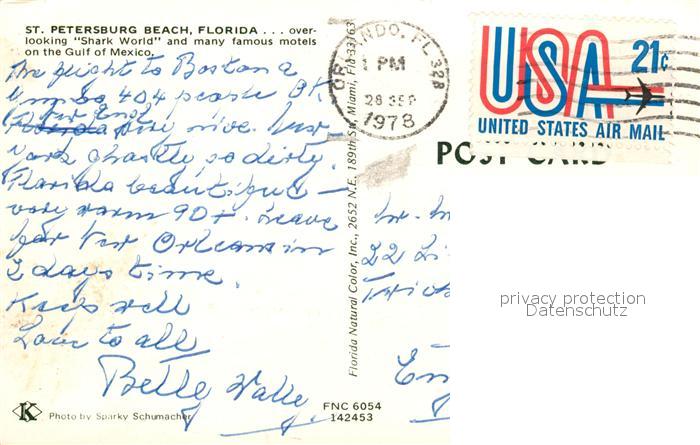 ST. PETERSBURG BEACH, FLORIDA . . . over-
looking "Shark World" and many famous motels
on the Gulf of Mexico.
The flight to Boston a
Jumbo 404 people OK
New Eng
nice. New
York ghastly, so dirty.
Florida beautiful –
very warm 90+. Leave
for New Orleans in
2 days time.
Keep well
Love to all
Betty Wally.
K
Photo by Sparky Schumacher
FNC 6054
142453
Florida Natural Color, Inc., 2652 N.E. 189th St., Miami, Fla 33163
ORLANDO, FL 328
1 PM
28 SEP
1978
USA 21c
UNITED STATES AIR MAIL
POST CARD
22
En
privacy protection
Datenschutz